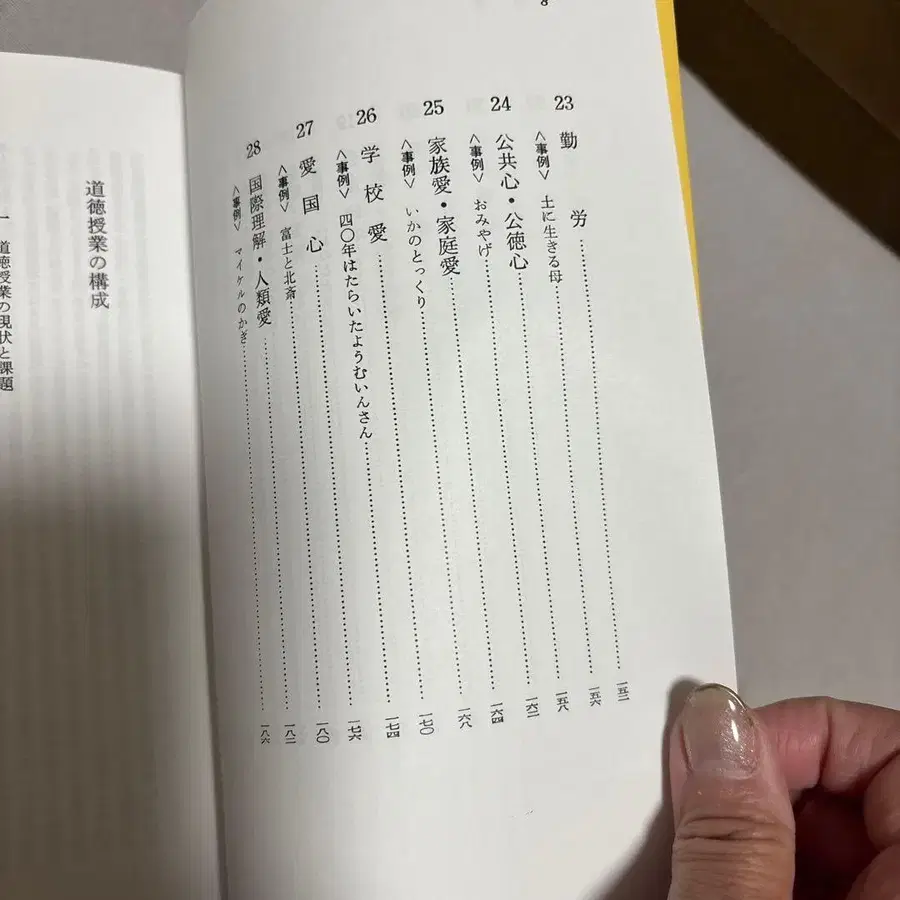 8
23 勤労……一五二
〈事例〉 土に生きる母……一五六
24 公共心・公徳心……一五八
〈事例〉 おみやげ……一六二
25 家族愛・家庭愛……一六四
〈事例〉 いかのとっくり……一六八
26 学校愛……一七〇
〈事例〉 四〇年はたらいたようむいんさん……一七四
27 愛国心……一七六
〈事例〉 富士と北斎……一八〇
28 国際理解・人類愛……一八二
〈事例〉 マイケルのかぎ……一八六
道徳授業の構成
一 道徳授業の現状と課題